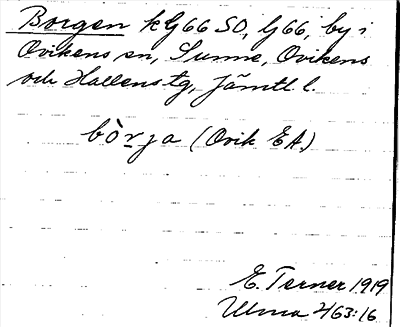 Borgen kG66 SO, G66, by i
Ovikens sn, Sunne, Ovikens
och Hallens tg, Jämtl. l.
bòrja (Ovik EA.)
E. Terner 1919
Ulma 2/63:16